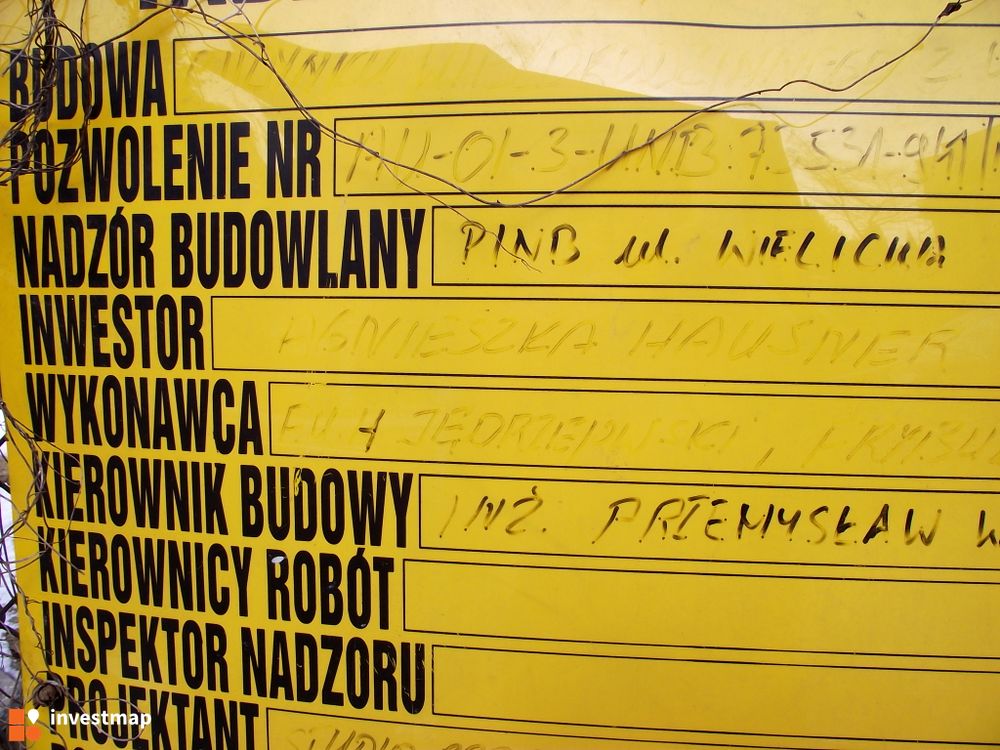 BUDOWA
POZWOLENIE NR AU-01-3-UNB.7353
NADZÓR BUDOWLANY PINB ul. WIELICKA
INWESTOR AGNIESZKA HAUSNER
WYKONAWCA FUH JĘDRZEJEWSKI,
KIEROWNIK BUDOWY INŻ. PRZEMYSŁAW W
KIEROWNICY ROBÓT
INSPEKTOR NADZORU
PROJEKTANT STUDIO
investmap